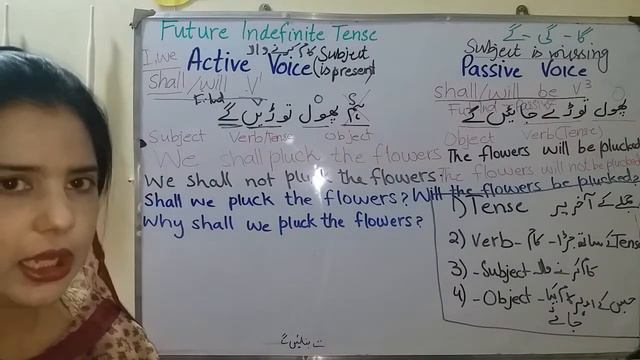 Future Indefinite Tense
گا - گی - گے
I, we Active Voice (Subject is present
کام کرنے والا
Subject is missing
Passive Voice
Shall/will V¹
shall/will be V³
ہم پھول توڑیں گے
پھول توڑے جائیں گے
Subject Verb/Tense Object
Object Verb(Tense)
We shall pluck the flowers. The flowers will be plucked
We shall not pluck the flowers. The flowers will not be plucked
Shall we pluck the flowers? Will the flowers be plucked?
Why shall we pluck the flowers?
1) Tense جملے کے آخر پر
2) Verb - کام - کے ساتھ جڑا Tense
3) - Subject - کام کرنے والا
4) - Object - جس کے اوپر کام کیا جائے